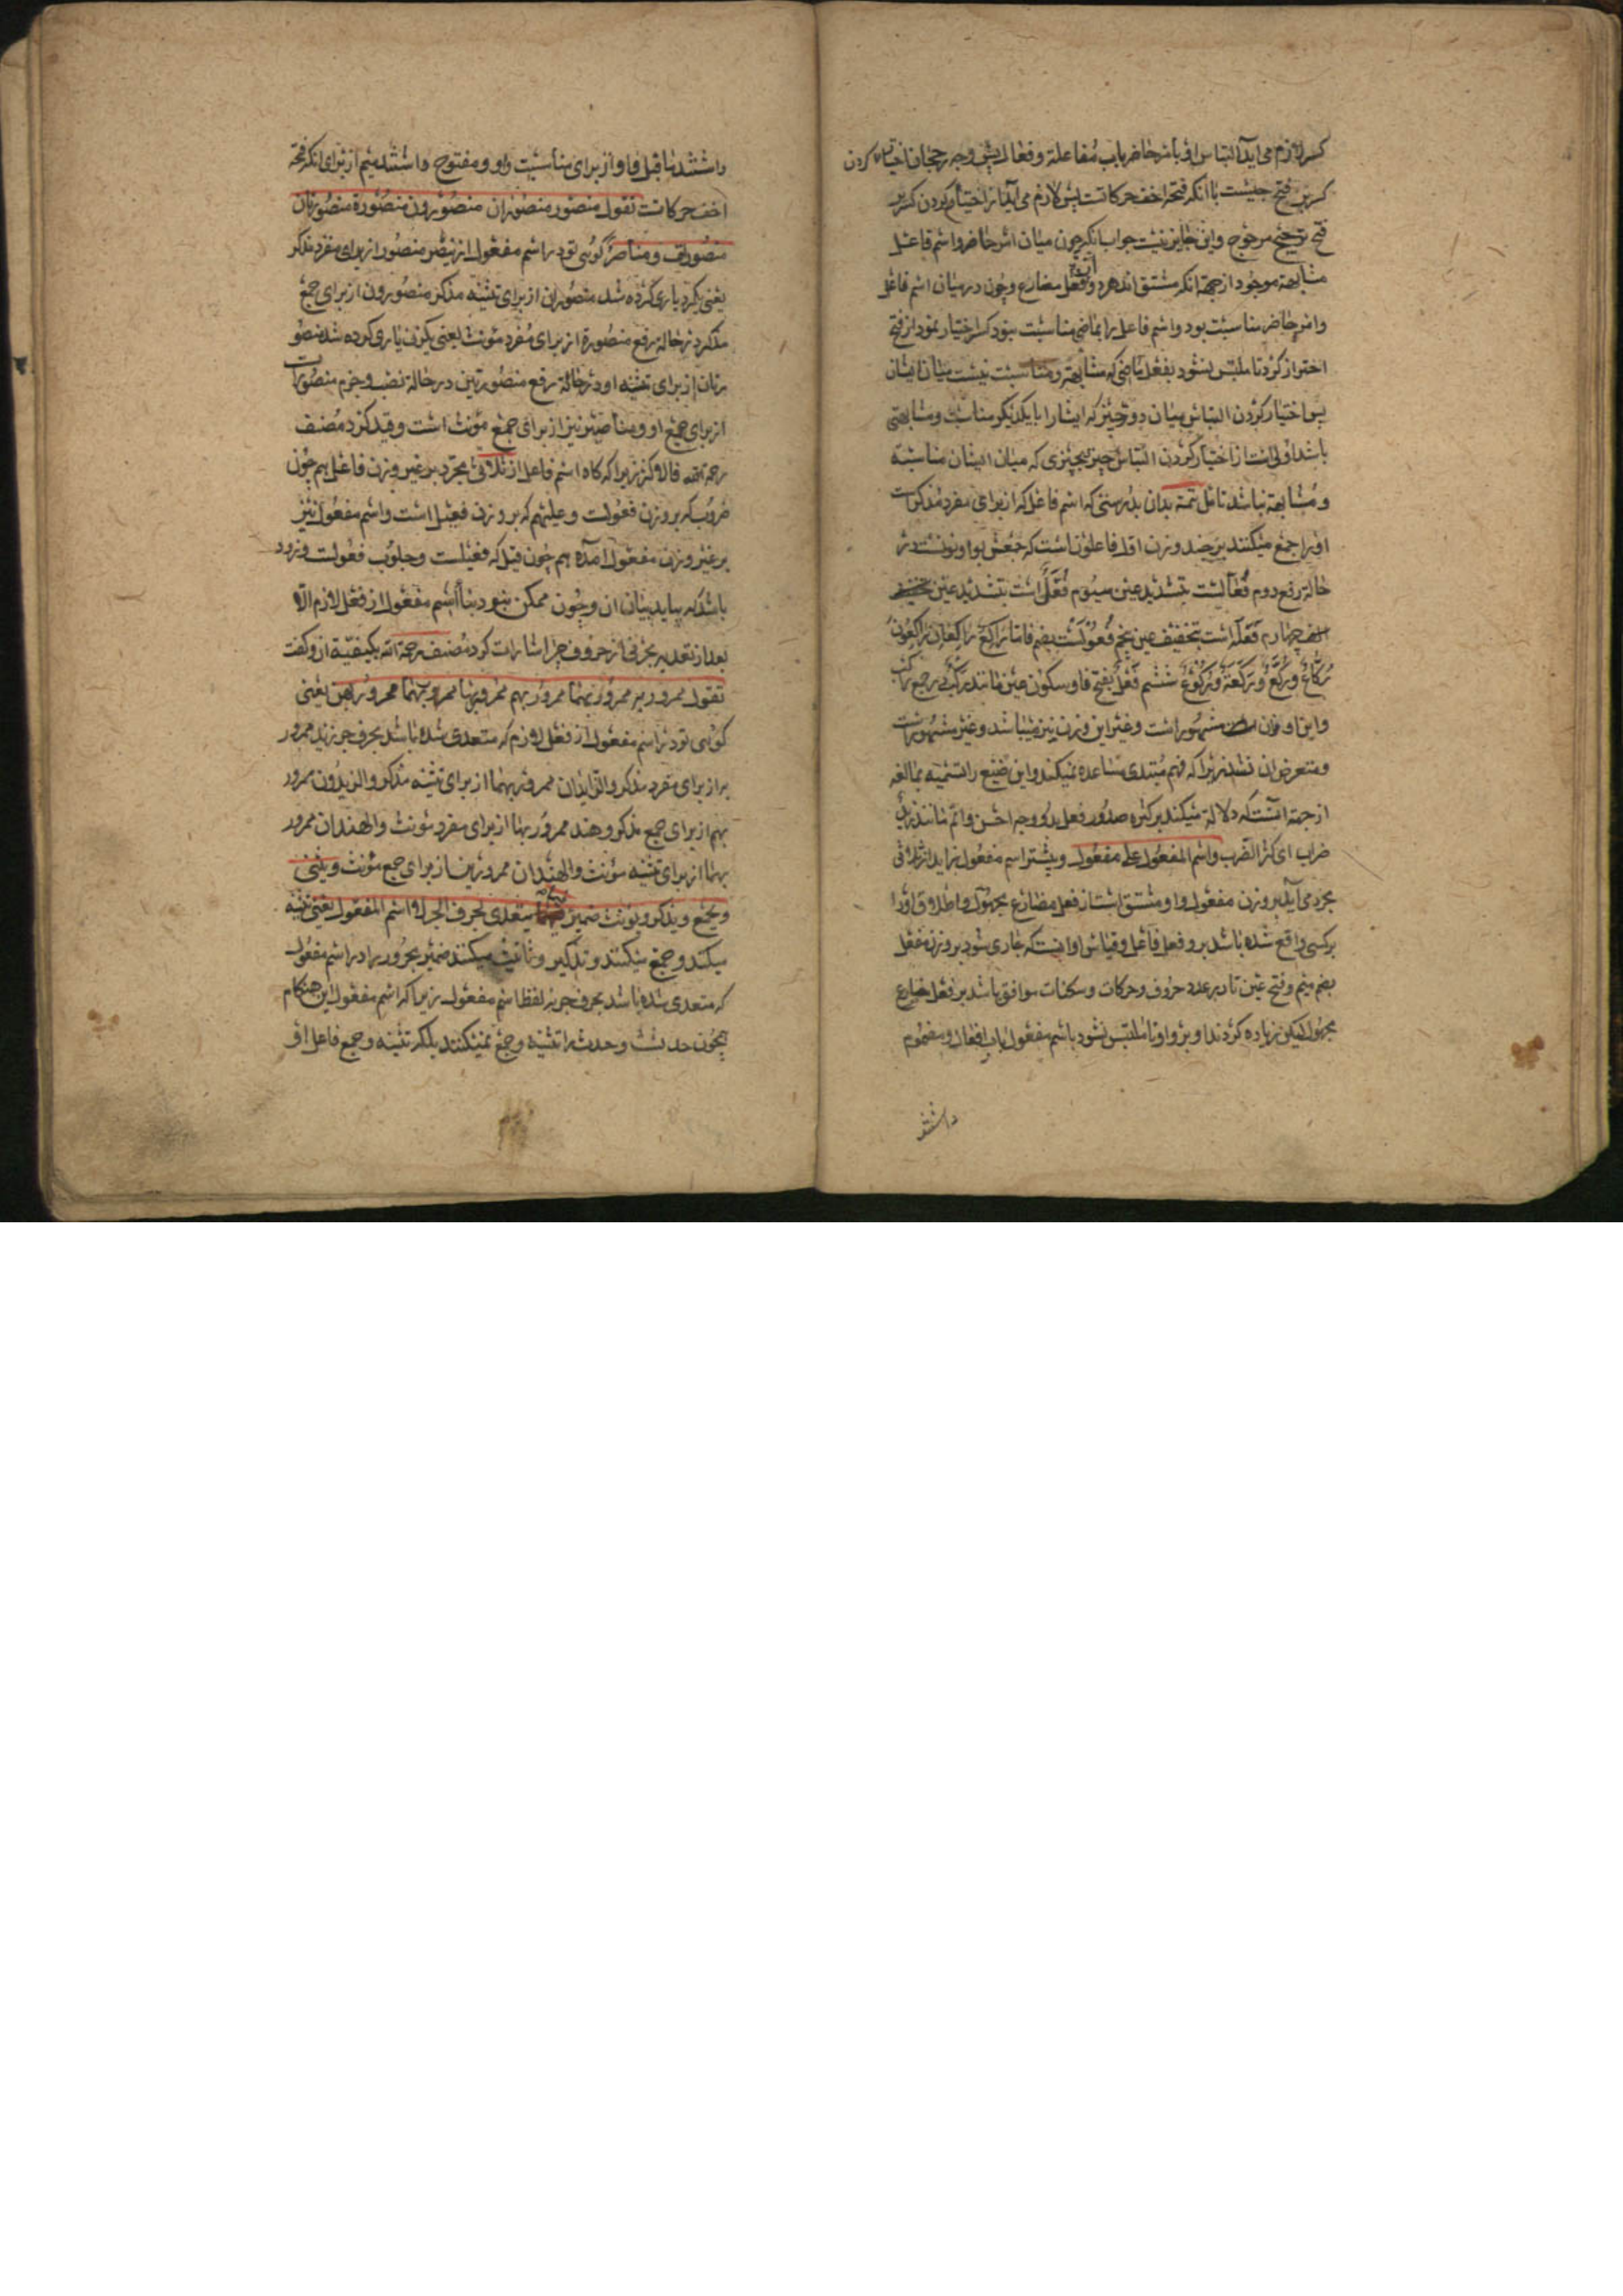 کسر لازم می‌آید التباس او بامر حاضر باب مفاعلة وفعال پس وجه رجحان اختیار کردن
کسر بر فتح چیست با انکه فتحه اخف حرکاتست پس لازم می‌آید از اختیار کردن کسر بر
فتح ترجیح مرجوح واین جایز نیست جواب انکه چون میان امر حاضر واسم فاعل
مشابهة موجود از جهة انکه مشتق اند هر دو از فعل مضارع وچون در میان اسم فاعل
وامر حاضر مناسبت بود واسم فاعل را بماضی مناسبت نبود کسر اختیار نمود از فتح
احتراز کرد تا ملتبس نشود بفعل ماضی که مشابهة ومناسبت نیست میان ایشان
پس اختیار کردن التباس میان دو چیز که ایشانرا با یکدیگر مناسبت ومشابهتی
باشد اولی است از اختیار کردن التباس چیز بچیزی که میان ایشان مناسبة
ومشابهة نباشد تامل تمة بدان بدرستی که اسم فاعل که از برای مفرد مذکر است
اورا جمع میکنند بر چند وزن اول فاعلون است که جمعش بواو ونونست در
حالة رفع دوم فعالیست بتشدید عین سیوم فعل است بتشدید عین
چهارم فعلة است بتخفیف عین پنجم فعولست بضم فا مانند راکع راکعان راکعون
رکاع ورکع ورکعة ورکوع ششم فعل بفتح فا وسکون عین مانند رکب در جمع راکب
واین اوزان مشهور است وغیر این وزن نیز میباشد وغیر مشهور است
ومتعرض ان نشد زیرا که فهم مبتدی مساعده نمیکند واین صیغ را تسمیه بمبالغه
از جهة انست که دلالة میکند بر کثره صدور فعل بدو وجه اخص واتم مانند زید
ضراب ای کثر الضرب واسم المفعول علی مفعول وبیشتر اسم مفعول نیز از ثلاثی
مجرد می‌آید بر وزن مفعول واو مشتق است از فعل مضارع مجهول واطلاق اورا
برکسی واقع شده باشد برو فعل فاعل وقیاس او انست که جاری شود بر وزن مفعل
بضم میم وفتح عین تا در عدد حروف وحرکات وسکنات موافق باشد بر فعل مضارع
مجهول لیکن زیاده کردند او بر واو تا ملتبس نشود باسم مفعول باب افعال ومضموم
داشتند
داشتند ما قبل واو از برای مناسبت واو ومفتوح داشتند میم از برای انکه فتحة
اخف حرکاتست تقول منصور منصوران منصورون منصورة منصورتان
منصورات ومناصر گویی تو در اسم مفعول از ینصر منصور از برای مفرد مذکر
یعنی یکمرد یاری کرده شد منصوران از برای تثنیه مذکر منصورون از برای جمع
مذکر در حالة رفع منصورة از برای مفرد مؤنث یعنی یکزن یاری کرده شد منصو
رتان از برای تثنیه او در حالة رفع منصورتین در حالة نصب وجزم منصورات
از برای جمع او ومناصیر نیز از برای جمع مؤنث است وقید کرد مصنف
رحمه الله فالاکثر زیرا که گاه اسم فاعل از ثلاثی مجرد بر غیر وزن فاعل هم چون
ضروب که بر وزن فعولست وعلیم که بر وزن فعیل است واسم مفعول نیز
بر غیر وزن مفعول امده هم چون قتیل که فعیلست وحلوب فعولست وزود
باشد که بیاید بیان ان وچون ممکن نبود بناء اسم مفعول از فعل لازم الا
بعد از تعدیه بحرفی از حروف جر اشارت کرد مصنف رحمة الله بکیفیة ان وگفت
تقول ممرور به ممرور بهما ممرور بهم ممرور بها ممرور بهما ممرور بهن یعنی
گویی تو در اسم مفعول از فعل لازم که متعدی شده باشد بحرف جر زید ممرور
به از برای مفرد مذکر والزیدان ممرور بهما از برای تثنیه مذکر والزیدون ممرور
بهم از برای جمع مذکر وهند ممرور بها از برای مفرد مؤنث والهندان ممرور
بهما از برای تثنیه مؤنث والهندان ممرور بهن از برای جمع مؤنث ویثنی
ویجمع ویذکر ویؤنث ضمیر فیما یتعدی بحرف الجر لا اسم المفعول یعنی تثنیه
میکنند وجمع میکنند وتذکیر وتانیث میکنند ضمیر مجرور را در اسم مفعول
که متعدی شده باشد بحرف جر نه لفظ اسم مفعول زیرا که اسم مفعول این هنگام
هم‌چون حدث است وحدث را تثنیه وجمع نمیکنند بلکه تثنیه وجمع فاعل او